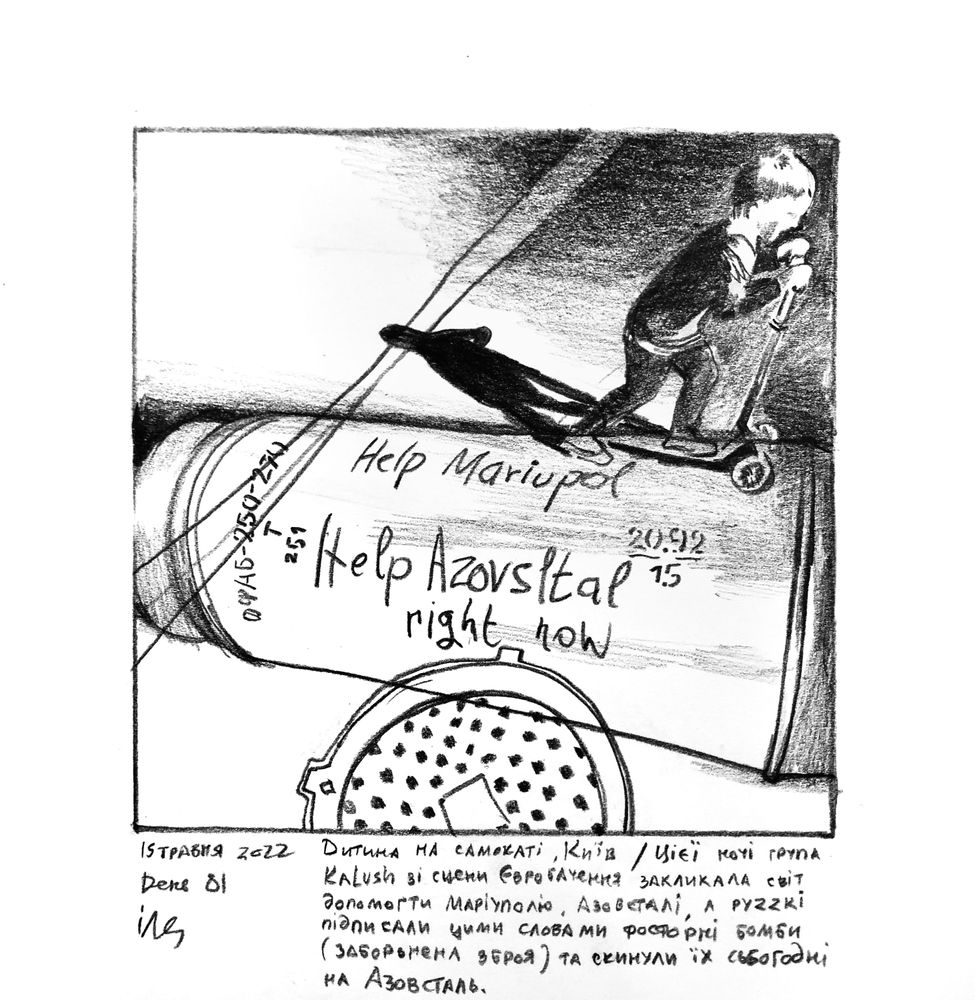 Help Mariupol
ОФАБ-250-271
Т
251
Help Azovsltal
right now
20.92
15
15 травня 2022
День 81
Дитина на самокаті, Київ / Цієї ночі група
Kalush зі сцени Євробачення закликала світ
допомогти Маріуполю, Азовсталі, а руzzкі
підписали цими словами фосфорні бомби
(заборонена зброя) та скинули їх сьогодні
на Азовсталь.